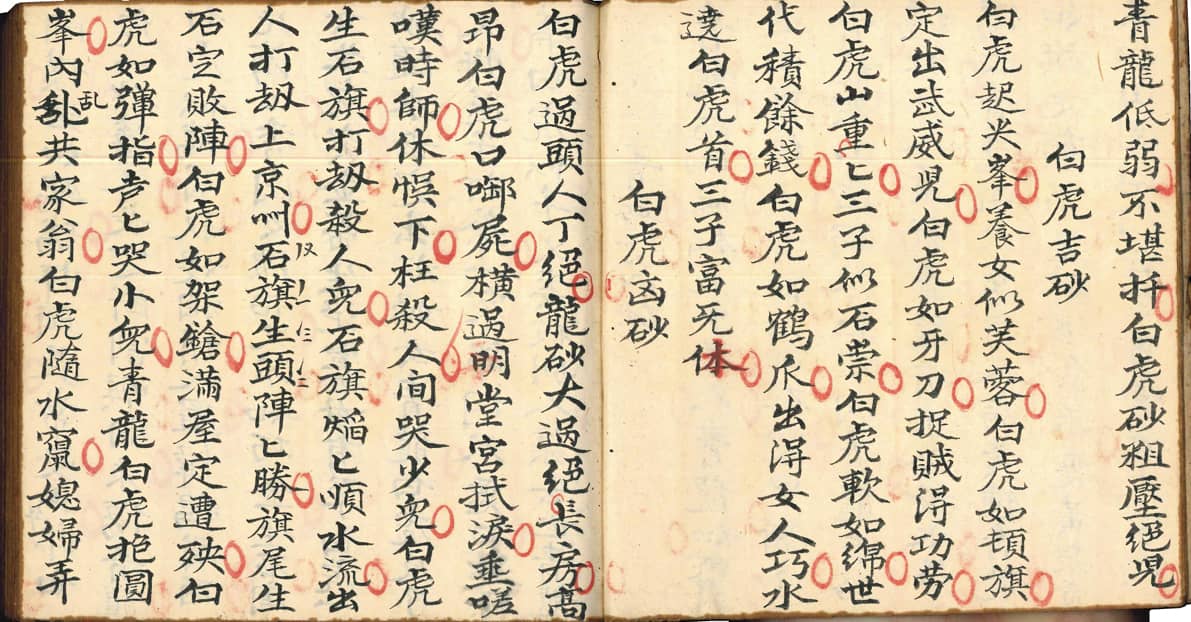 青龍低弱不堪扦白虎砂粗壓絕児
白虎吉砂
白虎起尖峯養女似芙蓉白虎如頓旗
定出武威児白虎如牙刀捉賊淂功劳
白虎山重匕三子似石崇白虎軟如綿世
代積餘錢白虎如鶴爪出淂女人巧水
遶白虎首三子富旡休
白虎凶砂
白虎過頭人丁絕龍砂大過絕長房高
昂白虎口啣屍橫過明堂宮拭淚垂嗟
嘆時師休悮下枉殺人间哭少児白虎
生石旗打刼殺人児石旗熖匕順水流出
人打刼上京州石旗生頭陣匕勝旗尾生
石定敗陣白虎如架鎗滿屋定遭殃白
虎如彈指声匕哭小児青龍白虎抱圓
峯內乱共家翁白虎隨水竄媳婦弄
乱